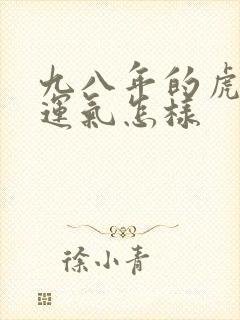 九八年的虎
運氣怎樣
徐小青